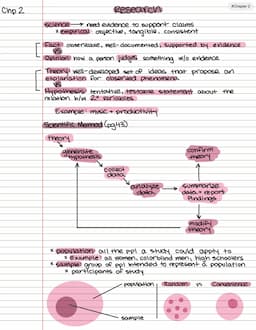 Chp.2
Research
#Chapter 2
Science → need evidence to support claims
* empirical: objective, tangible, consistent
Fact: observable, well-documented, supported by evidence
vs
Opinion: how a person judges something w/o evidence
Theory: well-developed set of ideas that propose an
explanation for observed phenomena
vs
Hypothesis: tentative, testable statement about the
relation b/w 2+ variables
Example: music + productivity
Scientific Method (pg 43)
theory
generate
hypothesis
collect
data
analyze
data
summarize
data + report
findings
confirm
theory
modify
theory
* population: all the ppl a study could apply to
* Example: all women, colorblind men, high schoolers
* sample: group of ppl intended to represent a population
* participants of study
population
sample
Random vs Convenience